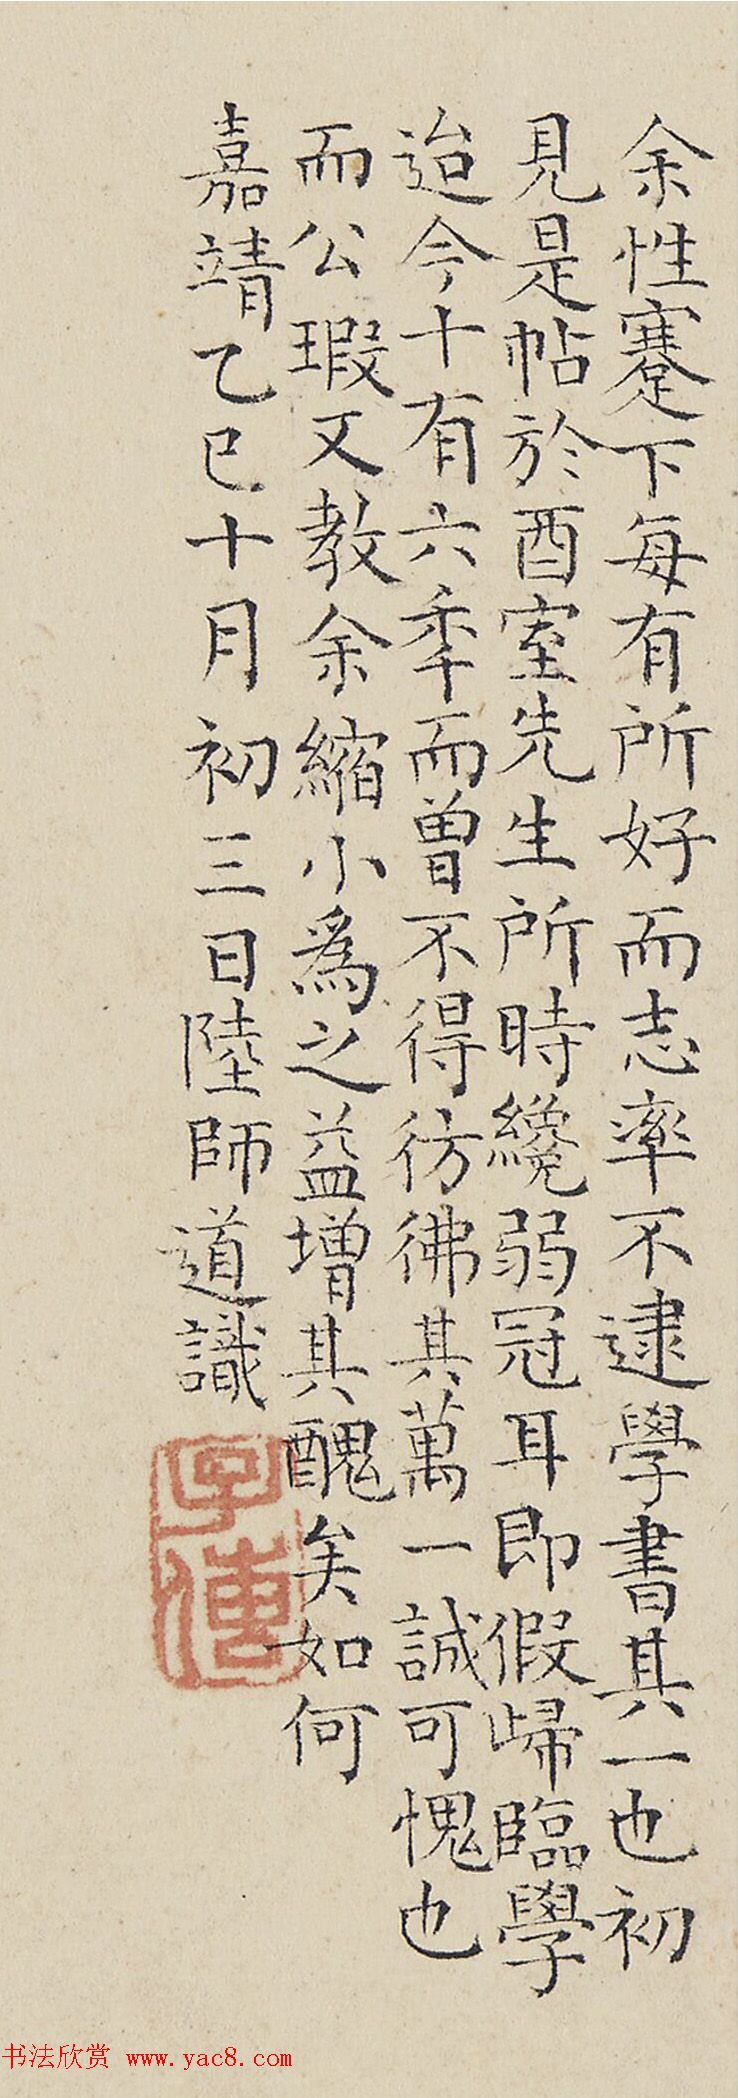 余性蹇下每有所好而志率不逮學書其一也初
見是帖於酉室先生所時纔弱冠耳即假歸臨學
迨今十有六秊而曾不得彷彿其萬一誠可愧也
而公瑕又教余縮小爲之益增其醜矣如何
嘉靖乙巳十月初三日陸師道識
子傳
书法欣赏 www.yac8.com